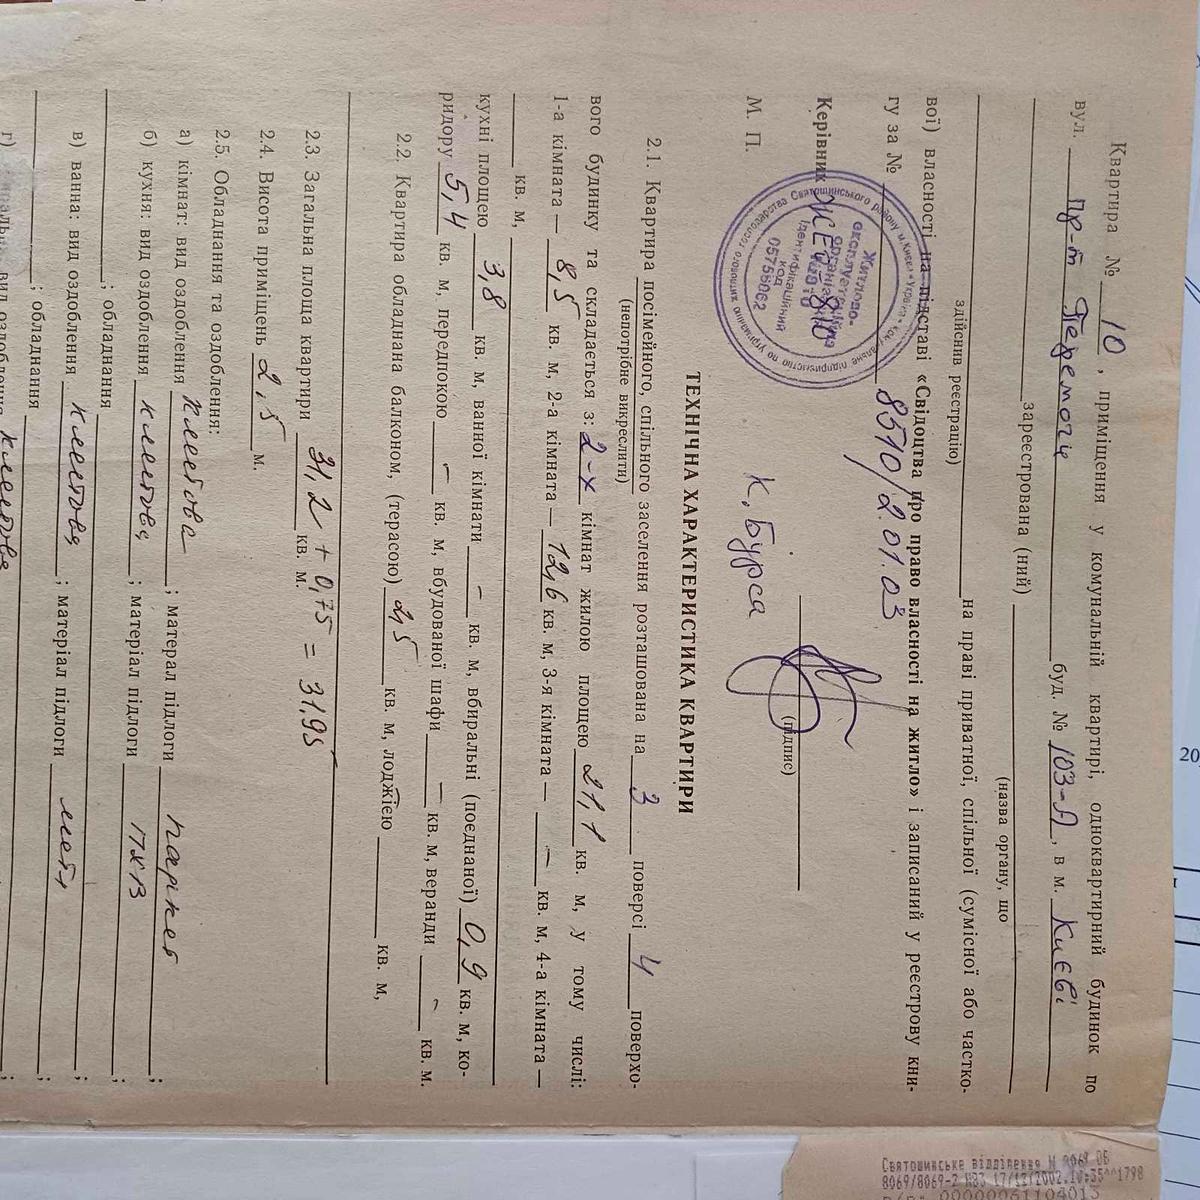 Квартира № 10, приміщення у комунальній квартирі, одноквартирний будинок по
вул. пр-т Перемоги буд. № 103-А, в м. Києві
зареєстрована (ний)
(назва органу, що
здійснив реєстрацію) на праві приватної, спільної (сумісної або частко-
вої) власності на підставі «Свідоцтва про право власності на житло» і записаний у реєстрову кни-
гу за № 8510/2.01.03
Керівник ЖЕД-810
(підпис)
М. П. К. Бурса
Житлово-
експлуатаційна
Ідентифікаційний
код
05756062
ТЕХНІЧНА ХАРАКТЕРИСТИКА КВАРТИРИ
2.1. Квартира посімейного, спільного заселення розташована на 3 поверсі 4 поверхо-
(непотрібне викреслити)
вого будинку та складається з: 2-х кімнат жилою площею 21,1 кв. м, у тому числі:
1-а кімната — 8,5 кв. м, 2-а кімната — 12,6 кв. м, 3-я кімната — – кв. м, 4-а кімната —
кв. м,
кухні площею 3,8 кв. м, ванної кімнати – кв. м, вбиральні (поєднаної) 0,9 кв. м, ко-
ридору 5,4 кв. м, передпокою – кв. м, вбудованої шафи – кв. м, веранди – кв. м.
2.2. Квартира обладнана балконом, (терасою) 2,5 кв. м, лоджією кв. м,
2.3. Загальна площа квартири 31,2 + 0,75 = 31,95 кв. м.
2.4. Висота приміщень 2,5 м.
2.5. Обладнання та оздоблення:
а) кімнат: вид оздоблення клеєва ; матерал підлоги паркет ;
б) кухня: вид оздоблення клеєва ; матеріал підлоги ПХВ
; обладнання ;
в) ванна: вид оздоблення клеєва ; матеріал підлоги метл ;
; обладнання ;
г) вид оздоблення клеєва ;
Святошинське відділення N 8069 ОБ
8069/8069-2 НВЗ 17/12/2002 10:35 1798
20